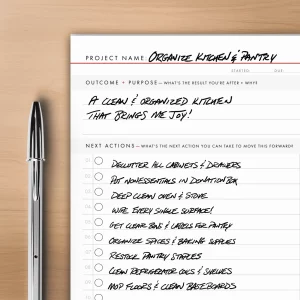 PROJECT NAME: ORGANIZE KITCHEN & PANTRY
STARTED: DUE:
OUTCOME + PURPOSE—WHAT'S THE RESULT YOU'RE AFTER + WHY?
A CLEAN & ORGANIZED KITCHEN
THAT BRINGS ME JOY!
NEXT ACTIONS—WHAT'S THE NEXT ACTION YOU CAN TAKE TO MOVE THIS FORWARD?
01 DECLUTTER ALL CABINETS & DRAWERS
02 PUT NONESSENTIALS IN DONATION BOX
03 DEEP CLEAN OVEN & STOVE
04 WIPE EVERY SINGLE SURFACE!
05 GET CLEAR BINS & LABELS FOR PANTRY
06 ORGANIZE SPICES & BAKING SUPPLIES
07 RESTOCK PANTRY STAPLES
08 CLEAN REFRIGERATOR COILS & SHELVES
09 MOP FLOORS & CLEAN BASEBOARDS